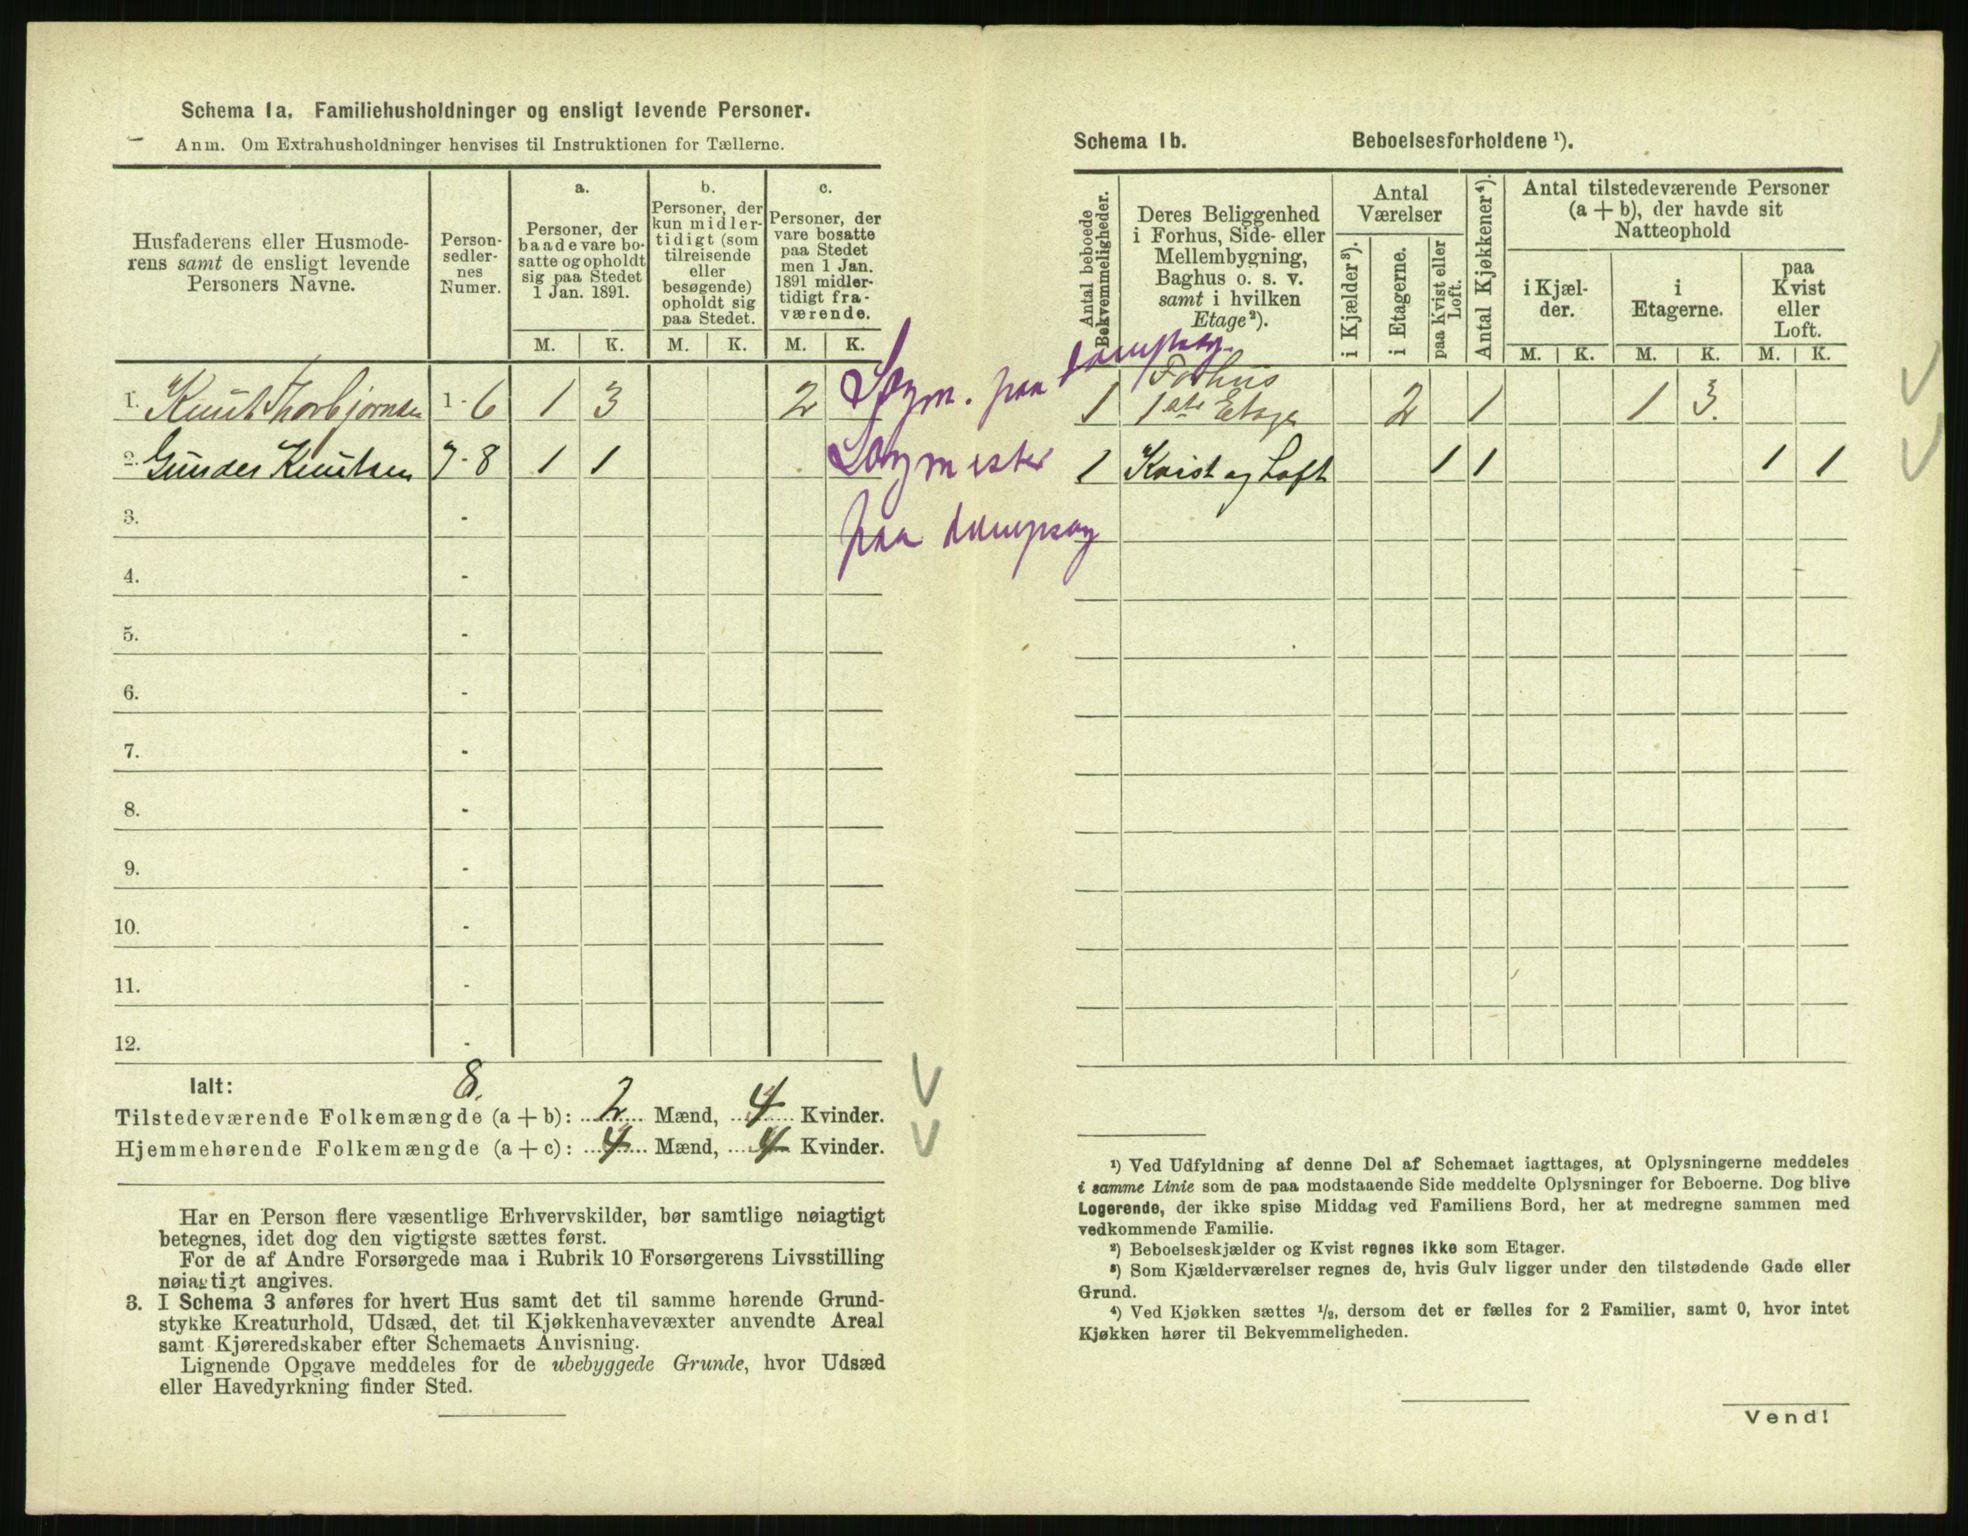 Schema 1a. Familiehusholdninger og ensligt levende Personer.
Anm. Om Extrahusholdninger henvises til Instruktionen for Tællerne.
Husfaderens eller Husmode-
rens samt de ensligt levende
Personers Navne.
Person-
sedler-
nes
Numer.
a.
Personer, der
baade vare bo-
satte og opholdt
sig paa Stedet
1 Jan. 1891.
b.
Personer, der
kun midler-
tidigt (som
tilreisende
eller
besøgende)
opholdt sig
paa Stedet.
c.
Personer, der
vare bosatte
paa Stedet
men 1 Jan.
1891 midler-
tidigt fra-
værende.
M. K. M. K. M. K.
1. Knut Thorbjørnsen 1 - 6 1 3 2
2. Gunder Knutsen 7 - 8 1 1
3. -
4. -
5. -
6. -
7. -
8. -
9. -
10. -
11. -
12. -
Sagm. paa Dampsag.
Sagmester
paa Dampsag
Ialt: 8.
Tilstedeværende Folkemængde (a + b): 2 Mænd, 4 Kvinder.
Hjemmehørende Folkemængde (a + c): 4 Mænd, 4 Kvinder.
Har en Person flere væsentlige Erhvervskilder, bør samtlige nøiagtigt
betegnes, idet dog den vigtigste sættes først.
For de af Andre Forsørgede maa i Rubrik 10 Forsørgerens Livsstilling
nøiagtigt angives.
3. I Schema 3 anføres for hvert Hus samt det til samme hørende Grund-
stykke Kreaturhold, Udsæd, det til Kjøkkenhavevæxter anvendte Areal
samt Kjøreredskaber efter Schemaets Anvisning.
Lignende Opgave meddeles for de ubebyggede Grunde, hvor Udsæd
eller Havedyrkning finder Sted.
Schema 1b. Beboelsesforholdene ¹).
Antal beboede
Bekvemmeligheder.
Deres Beliggenhed
i Forhus, Side- eller
Mellembygning,
Baghus o. s. v.
samt i hvilken
Etage²).
Antal
Værelser
i Kjælder³).
i Etagerne.
paa Kvist eller
Loft.
Antal Kjøkkener⁴).
Antal tilstedeværende Personer
(a + b), der havde sit
Natteophold
i Kjæl-
der.
i
Etagerne.
paa
Kvist
eller
Loft.
M. K. M. K. M. K.
1 Forhus
1ste Etage 2 1 1 3.
1 Kvist og Loft 1 1 1 1
¹) Ved Udfyldning af denne Del af Schemaet iagttages, at Oplysningerne meddeles
i samme Linie som de paa modstaaende Side meddelte Oplysninger for Beboerne. Dog blive
Logerende, der ikke spise Middag ved Familiens Bord, her at medregne sammen med
vedkommende Familie.
²) Beboelseskjælder og Kvist regnes ikke som Etager.
³) Som Kjælderværelser regnes de, hvis Gulv ligger under den tilstødende Gade eller
Grund.
⁴) Ved Kjøkken sættes ½, dersom det er fælles for 2 Familier, samt 0, hvor intet
Kjøkken hører til Bekvemmeligheden.
Vend!